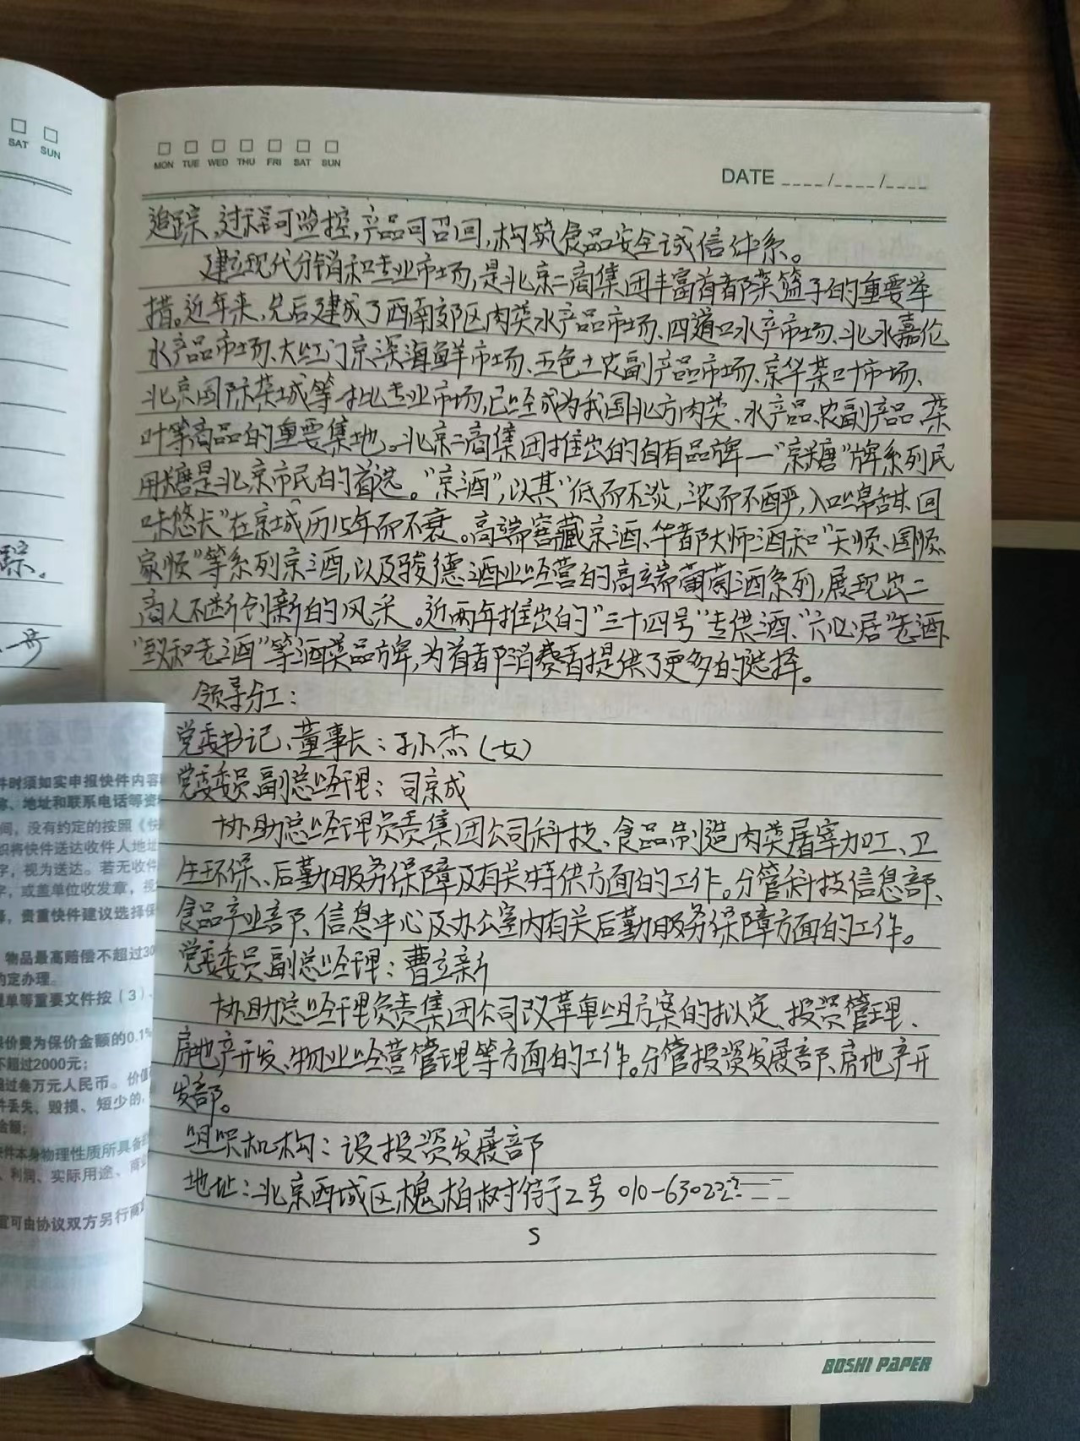 SAT SUN
MON TUE WED THU FRI SAT SUN
DATE ____/____/____
追踪、过程可监控,产品可召回,构筑食品安全诚信体系。
建立现代分销和专业市场,是北京二商集团丰富首都菜篮子的重要举
措。近年来,先后建成了西南郊区肉类水产品市场、四道口水产市场、北水嘉伦
水产品市场、大红门京深海鲜市场、五色土农副产品市场、京华茶叶市场、
北京国际茶城等一批专业市场,已经成为我国北方肉类、水产品、农副产品、茶
叶等商品的重要集地。北京二商集团推出的自有品牌—“京糖”牌系列民
用糖是北京市民的首选。“京酒”,以其“低而不淡,浓而不酽,入口绵甜,回
味悠长”在京城历15年而不衰。高端窖藏京酒、华都大师酒和“天顺、国顺、
家顺”等系列京酒,以及骏德酒业经营的高端葡萄酒系列,展现出二
商人不断创新的风采。近两年推出的“三十四号”专供酒、“六必居”老酒、
“致和老酒”等酒类品牌,为首都消费者提供了更多的选择。
领导分工:
党委书记、董事长:孙杰(女)
党委委员、副总经理:司京成
协助总经理负责集团公司科技、食品制造、肉类屠宰加工、卫
生环保、后勤服务保障及有关特供方面的工作。分管科技信息部、
食品产业部、信息中心及办公室内有关后勤服务保障方面的工作。
党委委员、副总经理:曹立新
协助总经理负责集团公司改革重组方案的拟定、投资管理、
房地产开发、物业经营管理等方面的工作。分管投资发展部、房地产开
发部。
组织机构:设投资发展部
地址:北京西城区槐柏树街2号 010-63022
S
BOSHI PAPER
踪.
件时须如实申报快件内容
、地址和联系电话等资
间,没有约定的按照《快
将快件送达收件人地址
字,视为送达。若无收件
字,或盖单位收发章,视
,贵重快件建议选择保
物品最高赔偿不超过30
约定办理。
单等重要文件按(3)
保价费为保价金额的0.1%
不超过2000元;
超过叁万元人民币。价值
件丢失、毁损、短少的,
金额;
快件本身物理性质所具备的
、利润、实际用途、商业
宜可由协议双方另行商